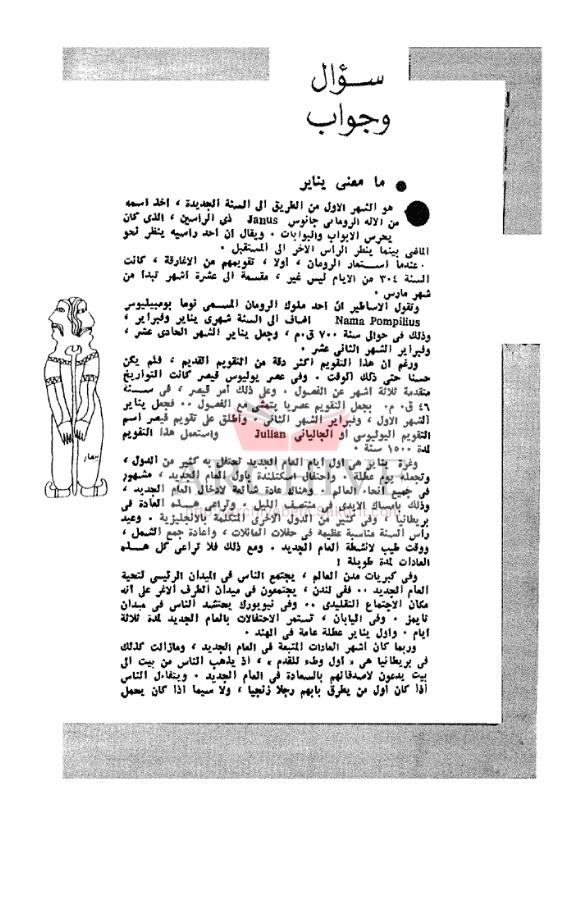 سؤال
وجواب
● ما معنى يناير
هو الشهر الاول من الطريق الى السنة الجديدة ، اخذ اسمه
من الاله الرومانى جانوس Janus ذى الراسين ، الذى كان
يحرس الابواب والبوابات . ويقال ان احد راسيه ينظر نحو
الماضى بينما ينظر الراس الاخر الى المستقبل .
عندما استعار الرومان ، أولا ، تقويمهم من الاغارقة ، كانت
السنة ٣٠٤ من الايام ليس غير ، مقسمة الى عشرة اشهر تبدا من
شهر مارس .
وتقول الاساطير ان احد ملوك الرومان المسمى نوما بومبيليوس
Nama Pompilius اضاف الى السنة شهرى يناير وفبراير ،
وذلك فى حوالى سنة ٧٠٠ ق.م ، وجعل يناير الشهر الحادى عشر ،
وفبراير الشهر الثانى عشر .
ورغم ان هذا التقويم اكثر دقة من التقويم القديم ، فلم يكن
حسنا حتى ذلك الوقت . وفى عصر يوليوس قيصر كانت التواريخ
متقدمة ثلاثة اشهر عن الفصول . وعلى ذلك أمر قيصر ، فى سنة
٤٦ ق.م. بجعل التقويم عصريا يتمشى مع الفصول .. فجعل يناير
الشهر الاول ، وفبراير الشهر الثانى . وأطلق على تقويم قيصر اسم
التقويم اليوليوسى أو الجاليانى Julian واستعمل هذا التقويم
لمدة ١٥٠٠ سنة .
وغرة يناير هى اول ايام العام الجديد تحتفل به كثير من الدول ،
وتجعله يوم عطلة . واحتفال اسكتلندة باول العام الجديد ، مشهور
فى جميع انحاء العالم . وهناك عادة شائعة لادخال العام الجديد ،
وذلك بامساك الايدى فى منتصف الليل . وتراعى هذه العادة فى
بريطانيا ، وفى كثير من الدول الاخرى المتكلمة بالانجليزية . وعيد
رأس السنة مناسبة عظيمة فى حفلات العائلات ، واعادة جمع الشمل ،
ووقت طيب لانشطة العام الجديد . ومع ذلك فلا تراعى كل هذه
العادات لمدة طويلة !
وفى كبريات مدن العالم ، يجتمع الناس فى الميدان الرئيسى لتحية
العام الجديد .. ففى لندن ، يجتمعون فى ميدان الطرف الاغر على انه
مكان الاجتماع التقليدى .. وفى نيويورك يحتشد الناس فى ميدان
تايمز . وفى اليابان ، تستمر الاحتفالات بالعام الجديد لمدة ثلاثة
ايام . واول يناير عطلة عامة فى الهند .
وربما كان أشهر العادات المتبعة فى العام الجديد ، ومازالت كذلك
فى بريطانيا هى « اول وطء للقدم » ، اذ يذهب الناس من بيت الى
بيت يدعون لاصدقائهم بالسعادة فى العام الجديد . ويتفاءل الناس
اذا كان أول من يطرق بابهم رجلا زنجيا ، ولا سيما اذا كان يحمل
ARCHIVE